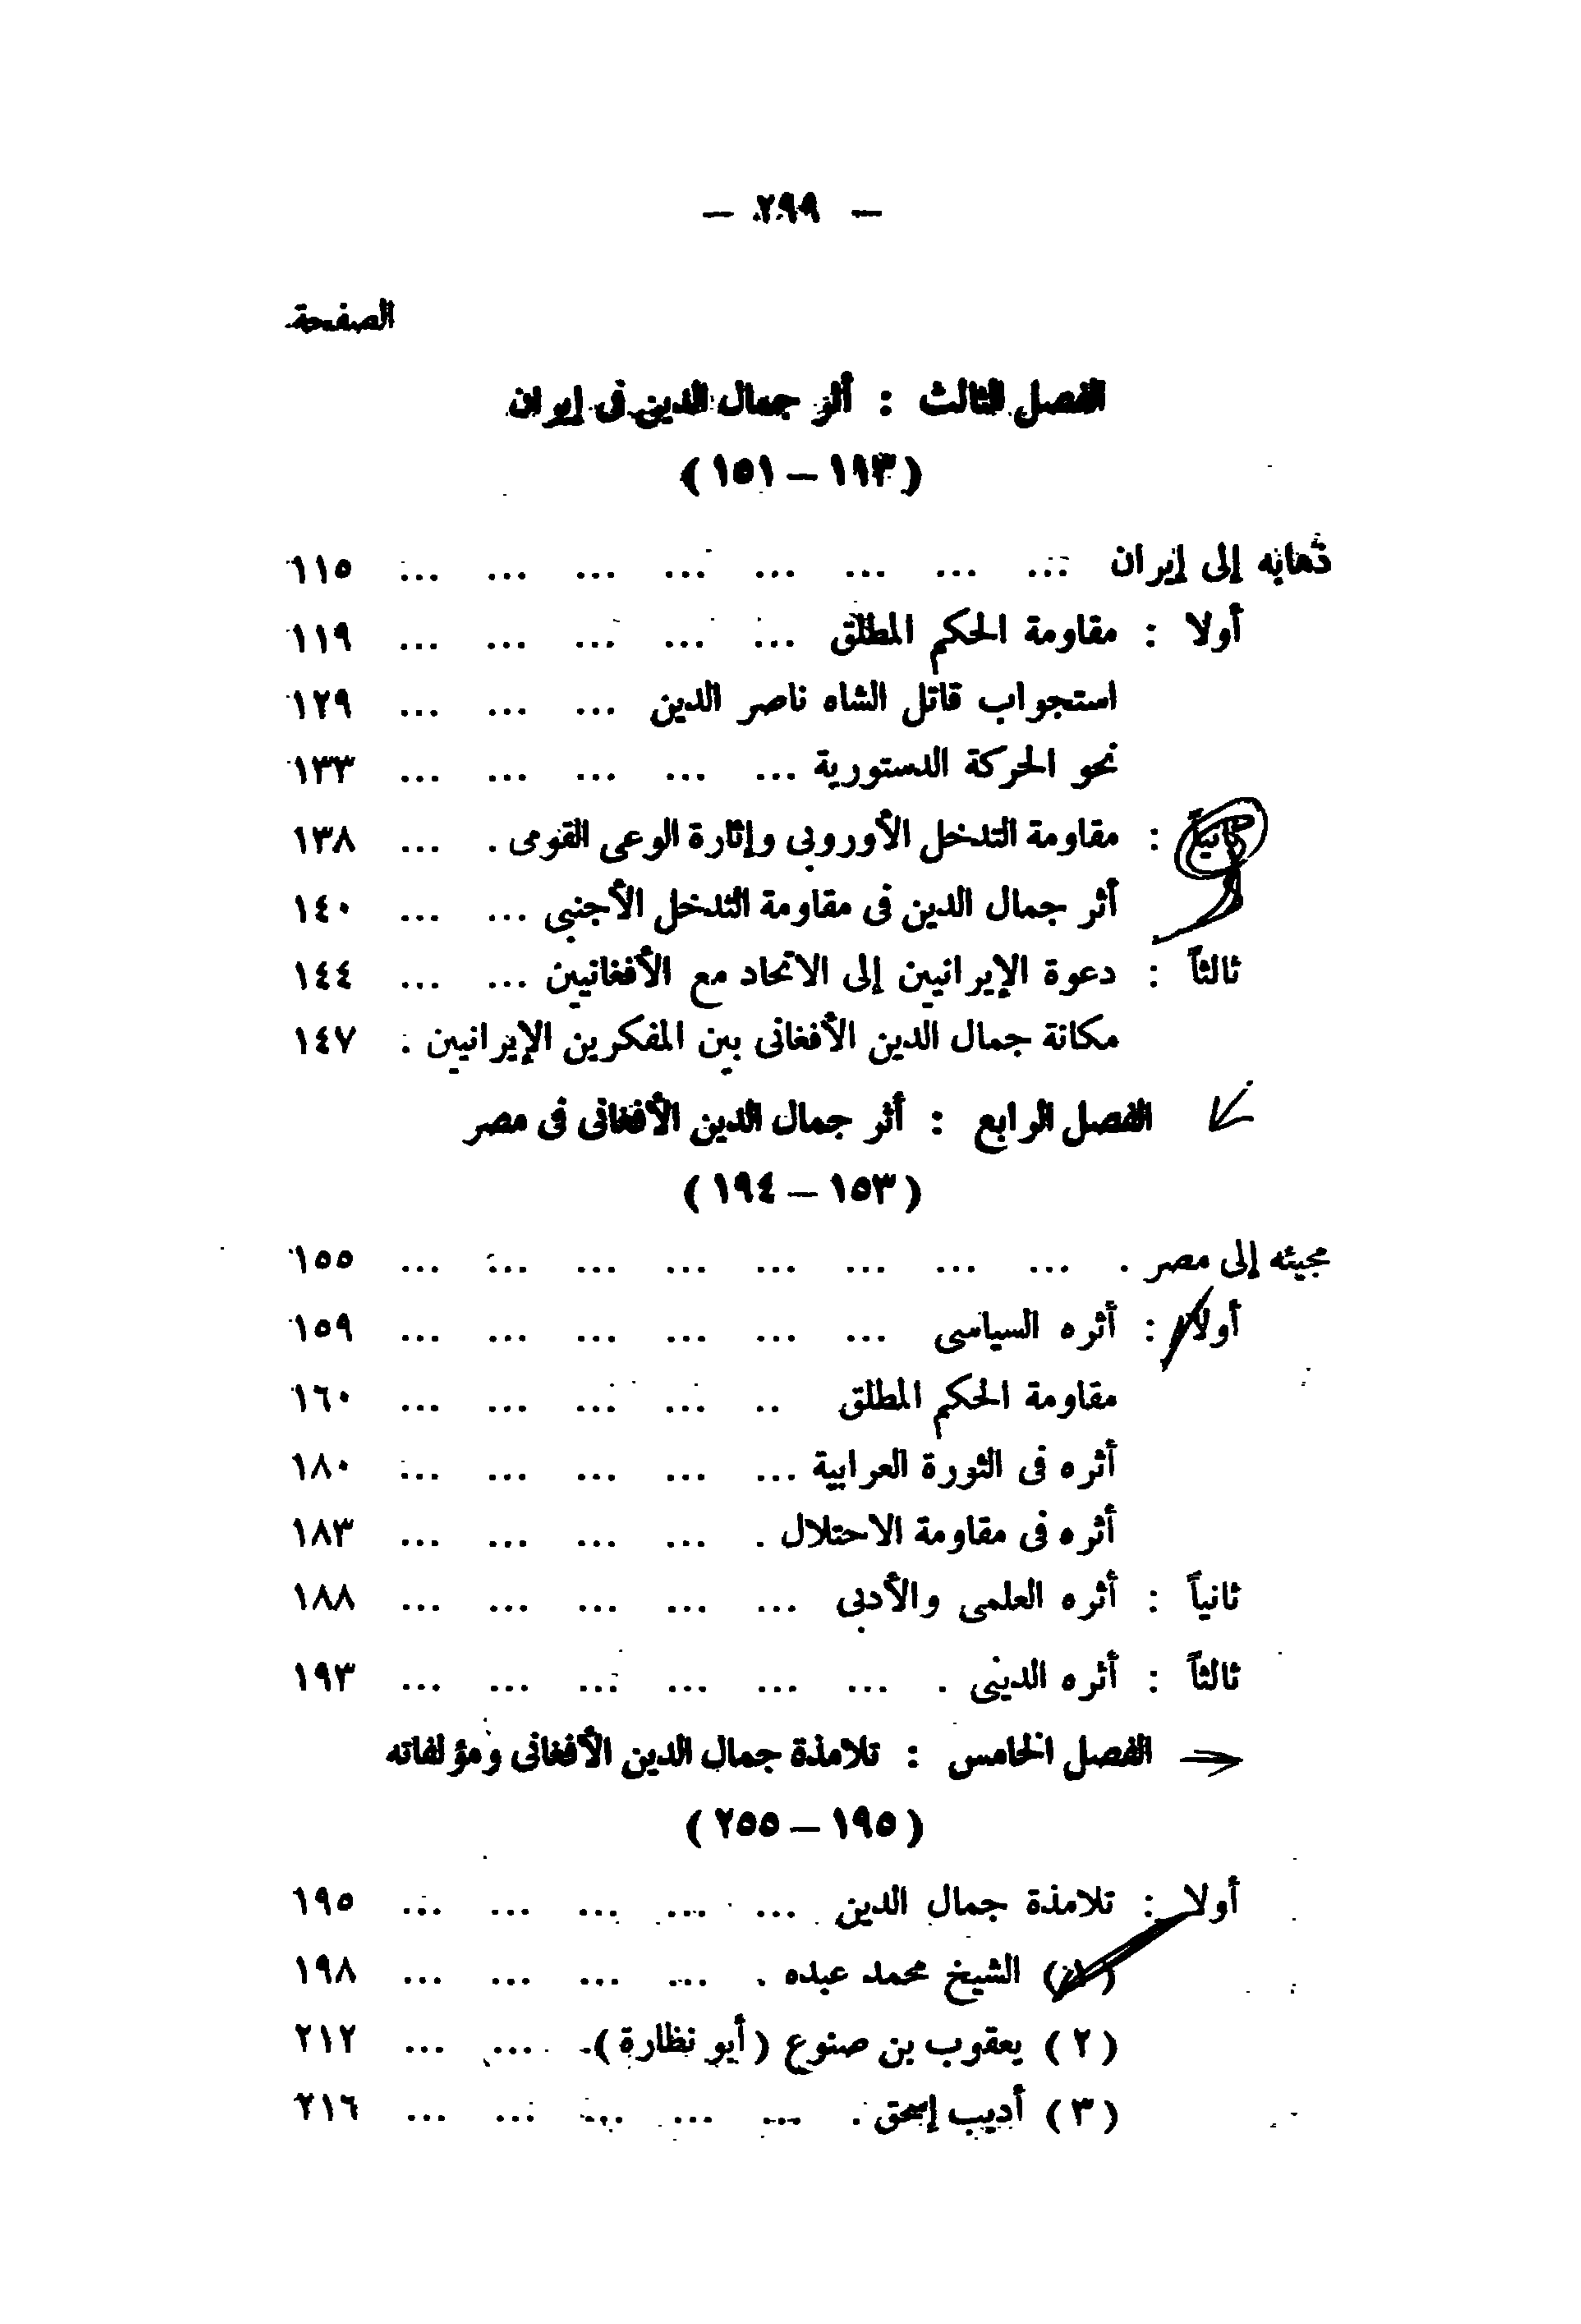 — ٢٩٩ —
الصفحة
الفصل الثالث : أثر جمال الدين فى إيران
( ١١٣ – ١٥١ )
ذهابه إلى إيران ... ... ... ... ... ... ... ... ١١٥
أولا : مقاومة الحكم المطلق ... ... ... ... ... ١١٩
استجواب قاتل الشاه ناصر الدين ... ... ... ١٢٩
نحو الحركة الدستورية ... ... ... ... ... ١٣٣
ثانياً : مقاومة التدخل الأوروبى وإثارة الوعى القومى . ... ١٣٨
أثر جمال الدين فى مقاومة التدخل الأجنبى ... ... ١٤٠
ثالثاً : دعوة الإيرانيين إلى الاتحاد مع الأفغانيين ... ... ١٤٤
مكانة جمال الدين الأفغانى بين المفكرين الإيرانيين . ١٤٧
الفصل الرابع : أثر جمال الدين الأفغانى فى مصر
( ١٥٣ – ١٩٤ )
مجيئه إلى مصر . ... ... ... ... ... ... ... ... ١٥٥
أولا : أثره السياسى ... ... ... ... ... ... ١٥٩
مقاومة الحكم المطلق .. ... ... ... ... ١٦٠
أثره فى الثورة العرابية ... ... ... ... ... ١٨٠
أثره فى مقاومة الاحتلال . ... ... ... ... ١٨٣
ثانياً : أثره العلمى والأدبى ... ... ... ... ... ١٨٨
ثالثاً : أثره الدينى . ... ... ... ... ... ... ١٩٣
الفصل الخامس : تلامذة جمال الدين الأفغانى ومؤلفاته
( ١٩٥ – ٢٥٥ )
أولا : تلامذة جمال الدين ... ... ... ... ... ١٩٥
(١) الشيخ محمد عبده . ... ... ... ... ١٩٨
( ٢ ) يعقوب بن صنوع ( أبو نظارة ). ... ... ٢١٢
( ٣ ) أديب إسحق . ... ... ... ... ... ٢١٦